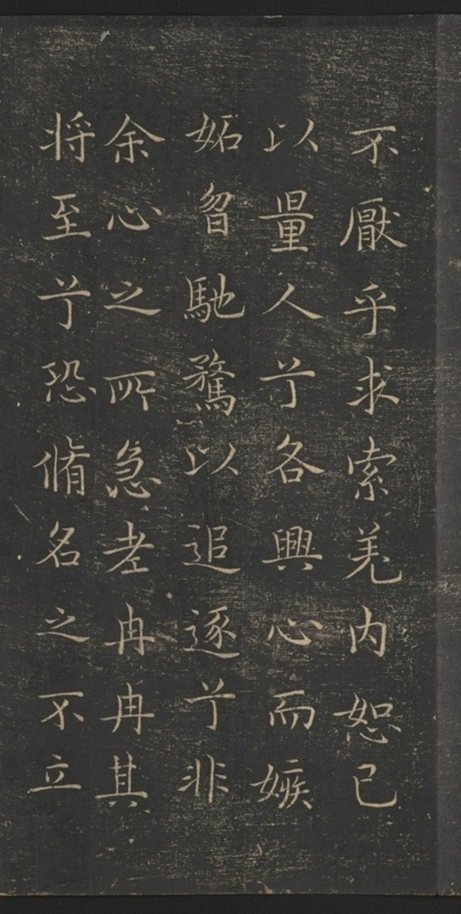 不厭乎求索羌内恕己
以量人兮各興心而嫉
妬曶馳騖以追逐兮非
余心之所急老冉冉其
将至兮恐脩名之不立